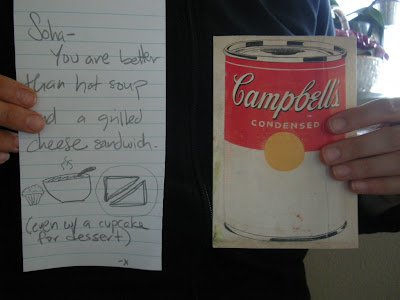 Soha-
You are better
than hot soup
and a grilled
cheese sandwich.
(even w/ a cupcake
for dessert)
-x
Campbell's
CONDENSED